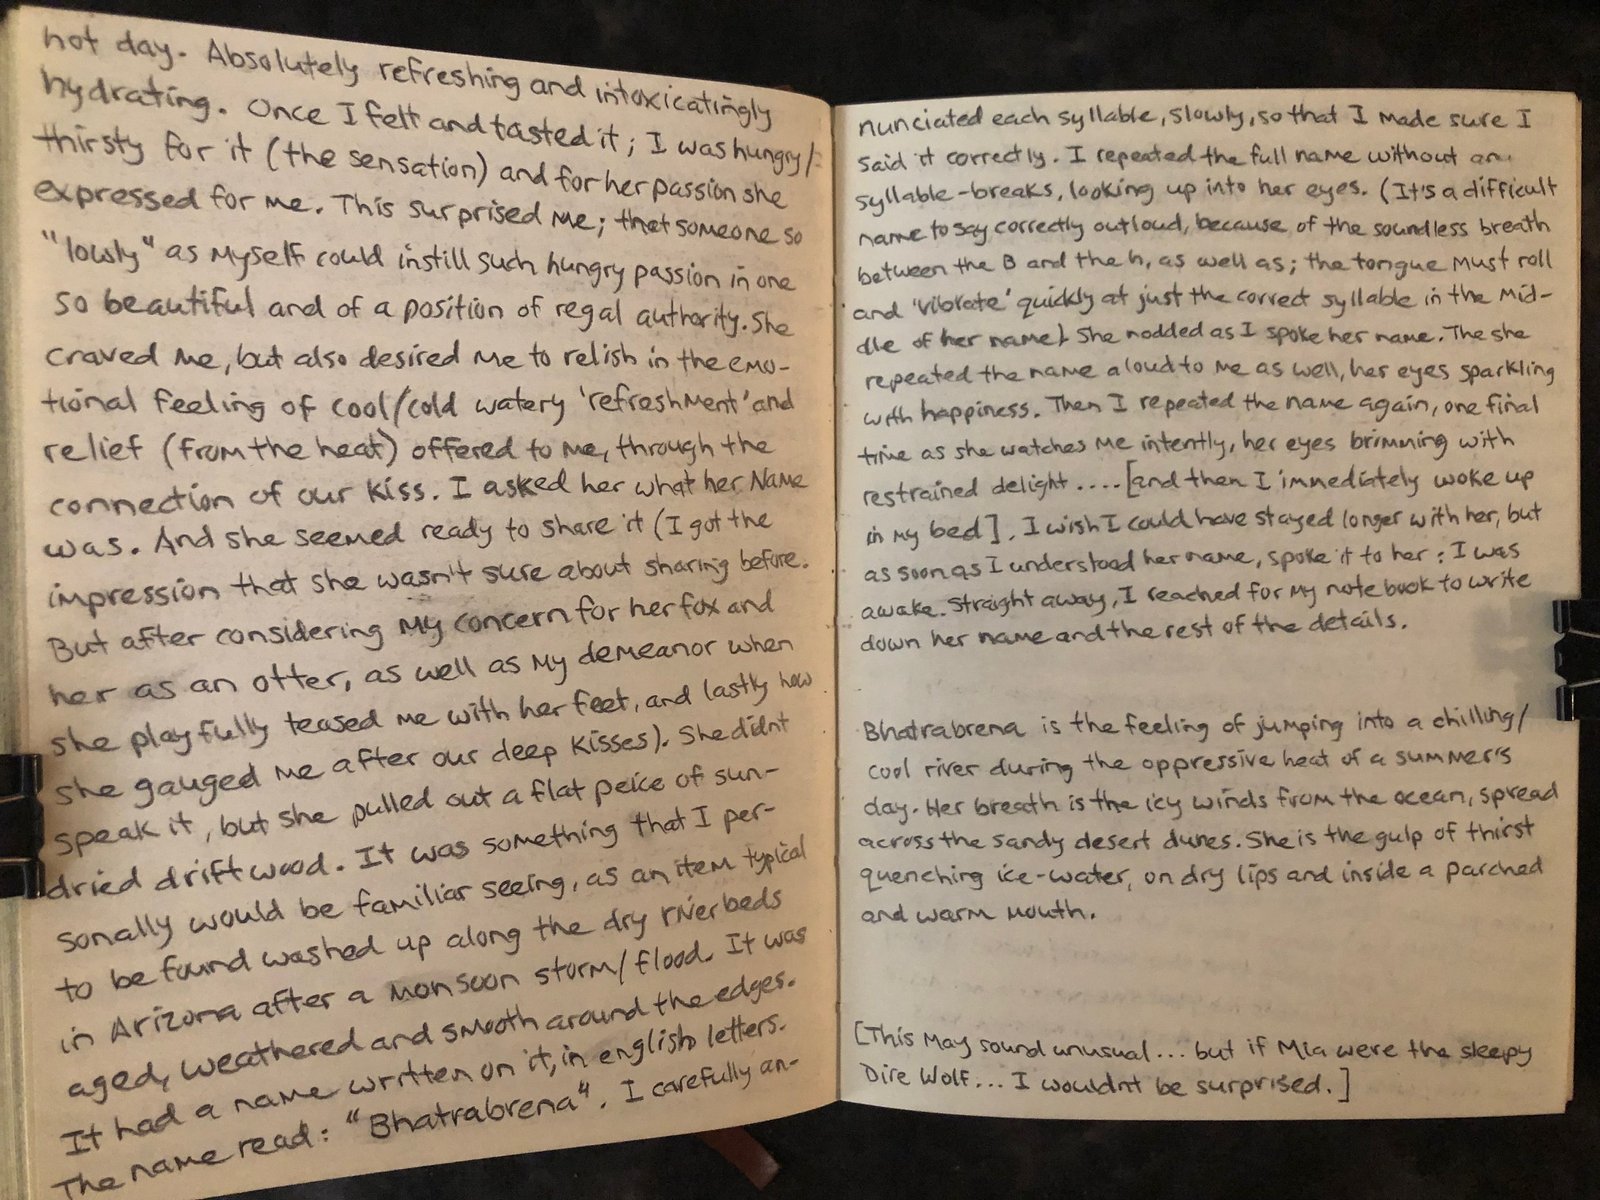 hot day. Absolutely refreshing and intoxicatingly
hydrating. Once I felt and tasted it; I was hungry/
thirsty for it (the sensation) and for her passion she
expressed for me. This surprised me; that someone so
"lowly" as myself could instill such hungry passion in one
so beautiful and of a position of regal authority. She
craved me, but also desired me to relish in the emo-
tional feeling of cool/cold watery 'refreshment' and
relief (from the heat) offered to me, through the
connection of our kiss. I asked her what her name
was. And she seemed ready to share it (I got the
impression that she wasn't sure about sharing before.
But after considering my concern for her fox and
her as an otter, as well as my demeanor when
she playfully teased me with her feet, and lastly how
she gauged me after our deep kisses). She didnt
speak it, but she pulled out a flat peice of sun-
dried driftwood. It was something that I per-
sonally would be familiar seeing, as an item typical
to be found washed up along the dry riverbeds
in Arizona after a monsoon storm/flood. It was
aged, weathered and smooth around the edges.
It had a name written on it, in english letters.
The name read: "Bhatrabrena". I carefully an-
nunciated each syllable, slowly, so that I made sure I
said it correctly. I repeated the full name without
syllable-breaks, looking up into her eyes. (It's a difficult
name to say correctly outloud, because of the soundless breath
between the B and the h, as well as; the tongue must roll
and 'vibrate' quickly at just the correct syllable in the mid-
dle of her name) She nodded as I spoke her name. The she
repeated the name aloud to me as well, her eyes sparkling
with happiness. Then I repeated the name again, one final
time as she watches me intently, her eyes brimming with
restrained delight .... [and then I immediately woke up
in my bed]. I wish I could have stayed longer with her, but
as soon as I understood her name, spoke it to her: I was
awake. Straight away, I reached for my note book to write
down her name and the rest of the details.
Bhatrabrena is the feeling of jumping into a chilling/
cool river during the oppressive heat of a summer's
day. Her breath is the icy winds from the ocean, spread
across the sandy desert dunes. She is the gulp of thirst
quenching ice-water, on dry lips and inside a parched
and warm mouth.
[This may sound unusual... but if Mia were the sleepy
Dire Wolf... I wouldnt be surprised.]